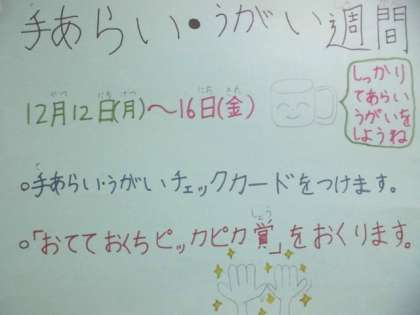 手あらい・うがい週間
12月12日(月)～16日(金)
しっかり
てあらい
うがいを
しようね
。手あらい・うがいチェックカードをつけます。
。「おてておくちピッカピカ賞」をおくります。